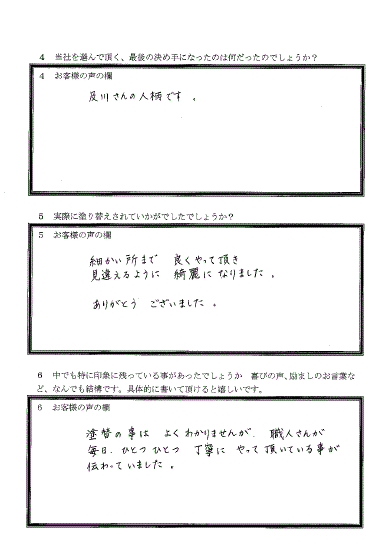 4 当社を選んで頂く、最後の決め手になったのは何だったのでしょうか？
4 お客様の声の欄
及川さんの人柄です。
5 実際に塗り替えされていかがでしたでしょうか？
5 お客様の声の欄
細かい所まで 良くやって頂き
見違えるように 綺麗になりました。
ありがとう ございました。
6 中でも特に印象に残っている事があったでしょうか 喜びの声、励ましのお言葉な
ど、なんでも結構です。具体的に書いて頂けると嬉しいです。
6 お客様の声の欄
塗替の事は よくわかりませんが、職人さんが
毎日、ひとつひとつ 丁寧に やって頂いている事が
伝わっていました。